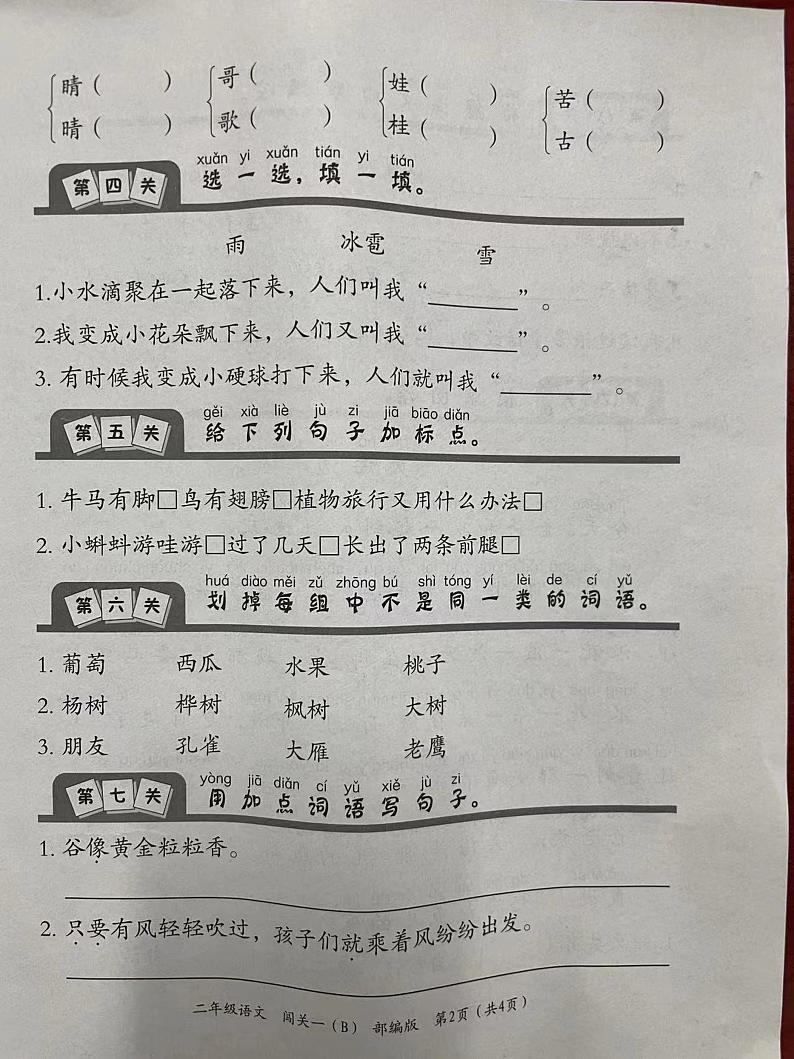 晴（  ） 哥（  ） 娃（  ） 苦（  ）
晴（  ） 歌（  ） 桂（  ） 古（  ）
xuǎn yi xuǎn tián yi tián
第四关 选一选，填一填。
雨 冰雹 雪
1.小水滴聚在一起落下来，人们叫我“______”。
2.我变成小花朵飘下来，人们又叫我“______”。
3. 有时候我变成小硬球打下来，人们就叫我“______”。
gěi xià liè jù zi jiā biāo diǎn
第五关 给下列句子加标点。
1. 牛马有脚□鸟有翅膀□植物旅行又用什么办法□
2. 小蝌蚪游哇游□过了几天□长出了两条前腿□
huá diào měi zǔ zhōng bú shì tóng yí lèi de cí yǔ
第六关 划掉每组中不是同一类的词语。
1. 葡萄 西瓜 水果 桃子
2. 杨树 桦树 枫树 大树
3. 朋友 孔雀 大雁 老鹰
yòng jiā diǎn cí yǔ xiě jù zi
第七关 用加点词语写句子。
1. 谷像黄金粒粒香。
2. 只要有风轻轻吹过，孩子们就乘着风纷纷出发。
二年级语文 闯关一（B） 部编版 第2页（共4页）